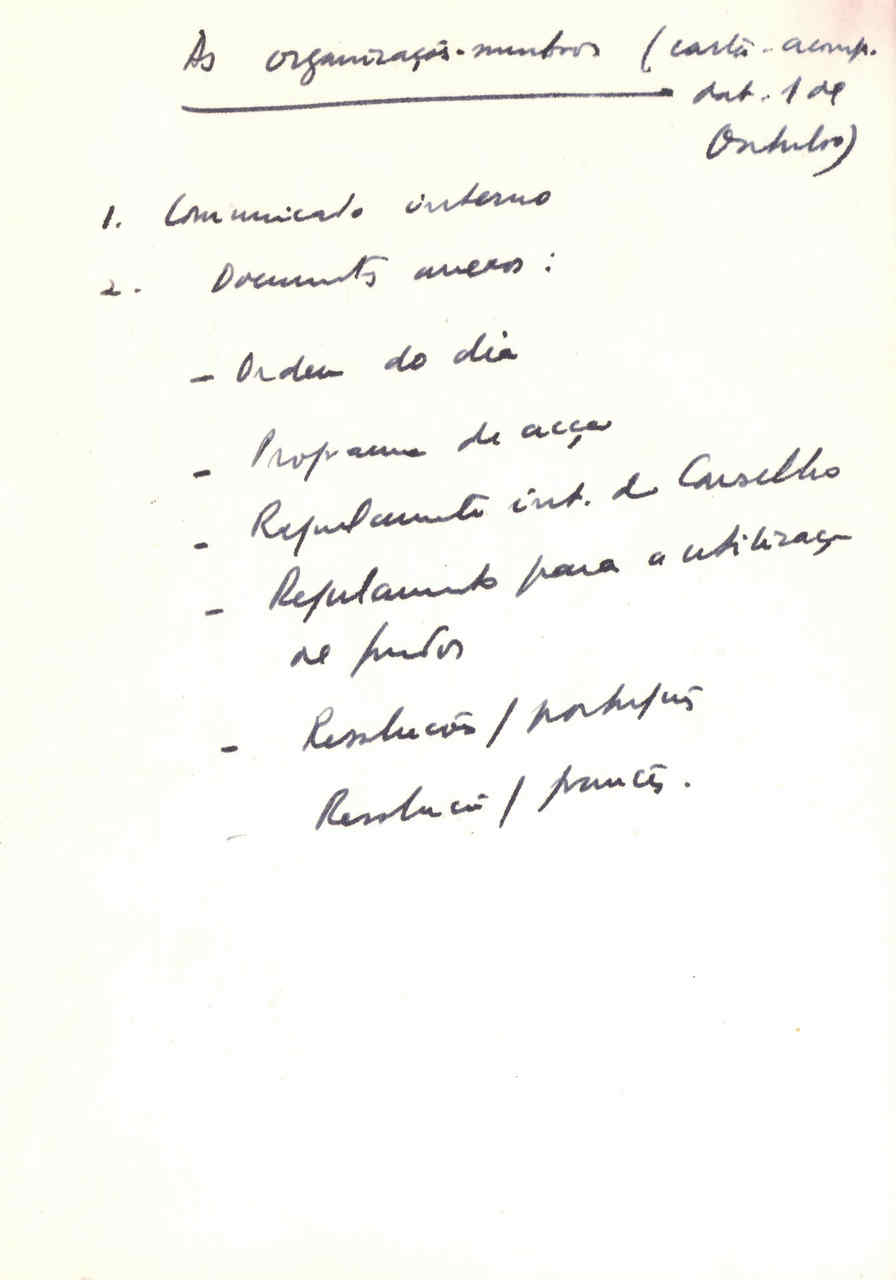 As organizações-membros (carta-acomp.
dat. 1 de
Outubro)
1. Comunicado interno
2. Documentos anexos :
- Ordem do dia
- Programa de acção
- Regulamento int. do Conselho
- Regulamento para a utilização
de fundos
- Resoluções / português
Resolução / francês.